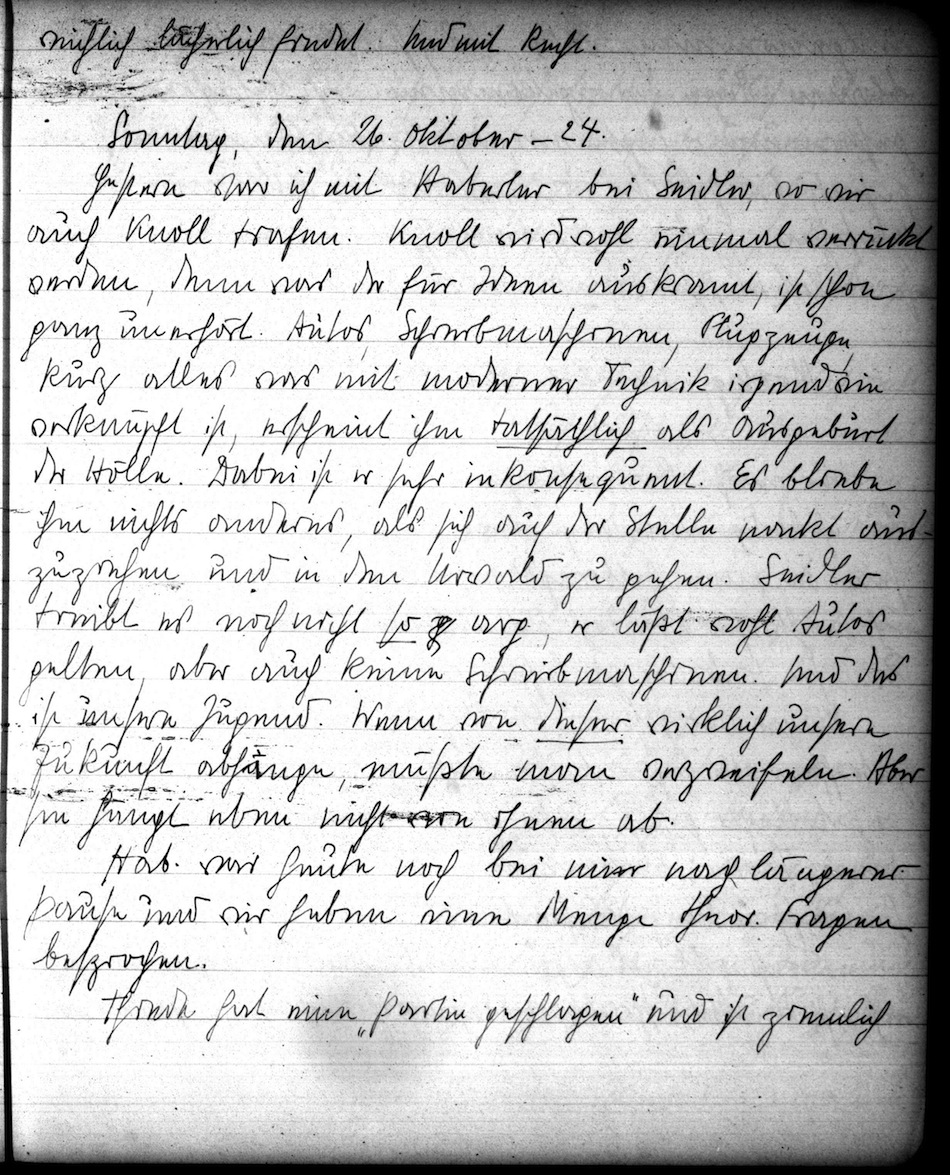 reichlich lächerlich findet. Und mit Recht.
Sonntag, den 26. Oktober – 24.
Gestern war ich mit Haberler bei Seidler, wo wir
auch Knoll trafen. Knoll wird wohl einmal verrückt
werden, denn was der für Ideen auskramt, ist schon
ganz unerhört. Autos, Schreibmaschinen, Flugzeuge,
kurz alles was mit moderner Technik irgendwie
verknüpft ist, erscheint ihm tatsächlich als Ausgeburt
der Hölle. Dabei ist er sehr inkonsequent. Es bliebe
ihm nichts anderes, als sich auf der Stelle nackt aus-
zuziehen und in den Urwald zu gehen. Seidler
treibt es noch nicht so arg, er läßt wohl Autos
gelten, aber auch keine Schreibmaschinen. Und das
ist unsere Jugend. Wenn von dieser wirklich unsere
Zukunft abhänge, müßte man verzweifeln. Aber
sie hängt eben nicht von ihnen ab.
Hab. war heute noch bei mir nach längerer
Pause und wir haben eine Menge theor. Fragen
besprochen.
Thiede hat eine „Partie geschlagen“ und ist ziemlich